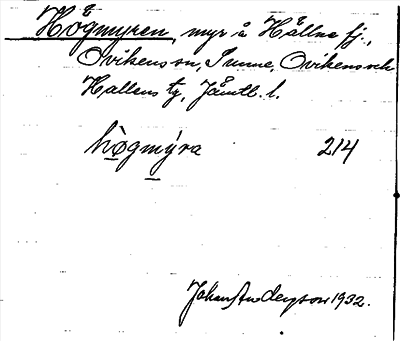 Högmyren, myr å Hållne fj.,
Ovikens sn, Sunne, Ovikens och
Hallens tg, Jämtl. l.
hògmýra 214
Johan Anderson 1932.